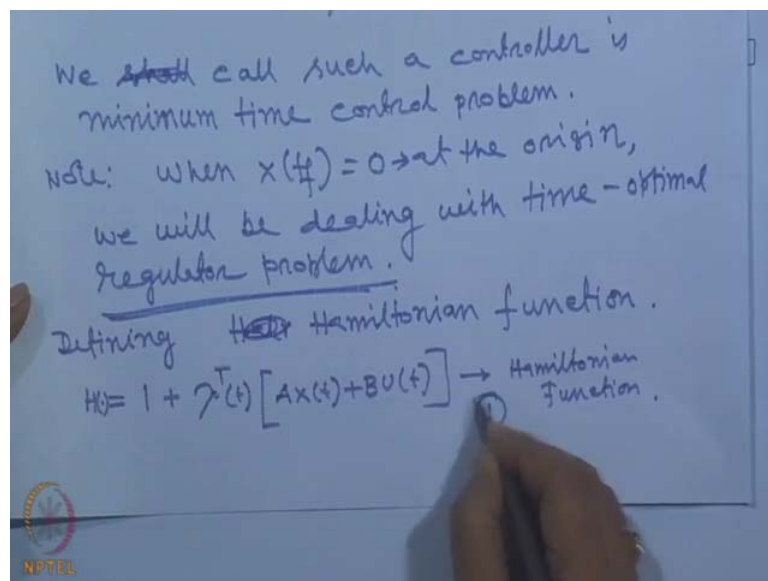 We call such a controller is
minimum time control problem.
Note: When x(tf) = 0 → at the origin,
we will be dealing with time-optimal
regulator problem.
Defining Hamiltonian function.
H(·) = 1 + λᵀ(t) [Ax(t) + BU(t)] → Hamiltonian
Function.
①
NPTEL